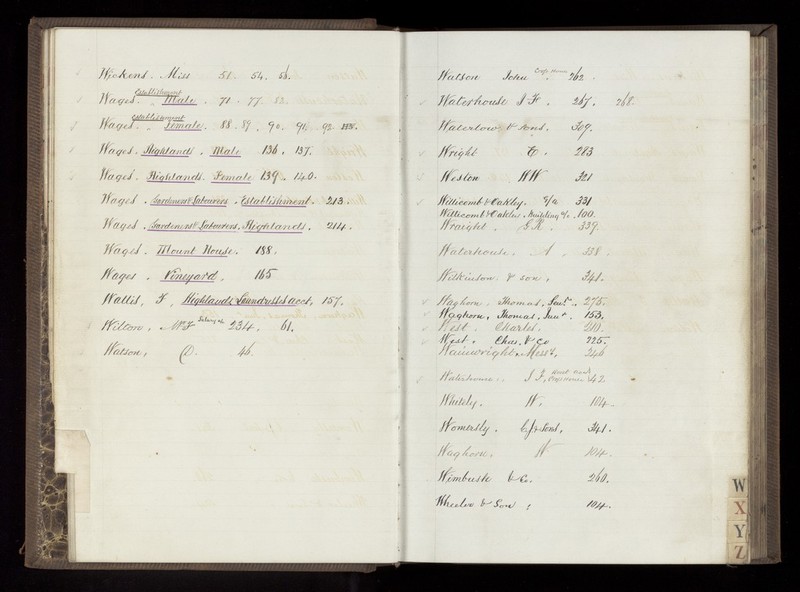 Wickens. Miss 51. 54. 56.
Establishment
Wages. Male. 71. 77. 82.
Establishment
Wages. Female. 88. 89. 90. 91. 92.
Wages. Highlands. Male 136. 137.
Wages. Highlands. Female 139. 140.
Wages. Gardeners & Labourers. Establishment. 213.
Wages. Gardeners & Labourers. Highlands. 214.
Wages. Mount House. 188.
Wages. Vineyard. 165
Wallis, F, Highlands Laundry acct, 157.
Wilton. Mr F Salary a/c 234. 61.
Watson, D. 46.
Watson John. 262.
Waterhouse J F. 267. 268.
Waterlow & Sons. 309.
Wright E. 283
Weston WW 321
Willicomb & Oakley. 331
Willicomb & Oakley. Building a/c. 100.
Wraight. G R. 339
Waterhouse. A. 338.
Wilkinson & Son, 341.
Waghorn. Thomas, Senr. 275.
Waghorn, Thomas, Junr. 153.
West. Charles. 210.
West. Chas. & Co 225.
Wainwright. Messrs, 246
Waterhouse. J F, 42.
Whitley. W. 104.
Womersly. & Sons, 341.
Waghorn. W 104.
Wimbush & Co. 260.
Wheeler & Son, 104.
W
X
Y
Z